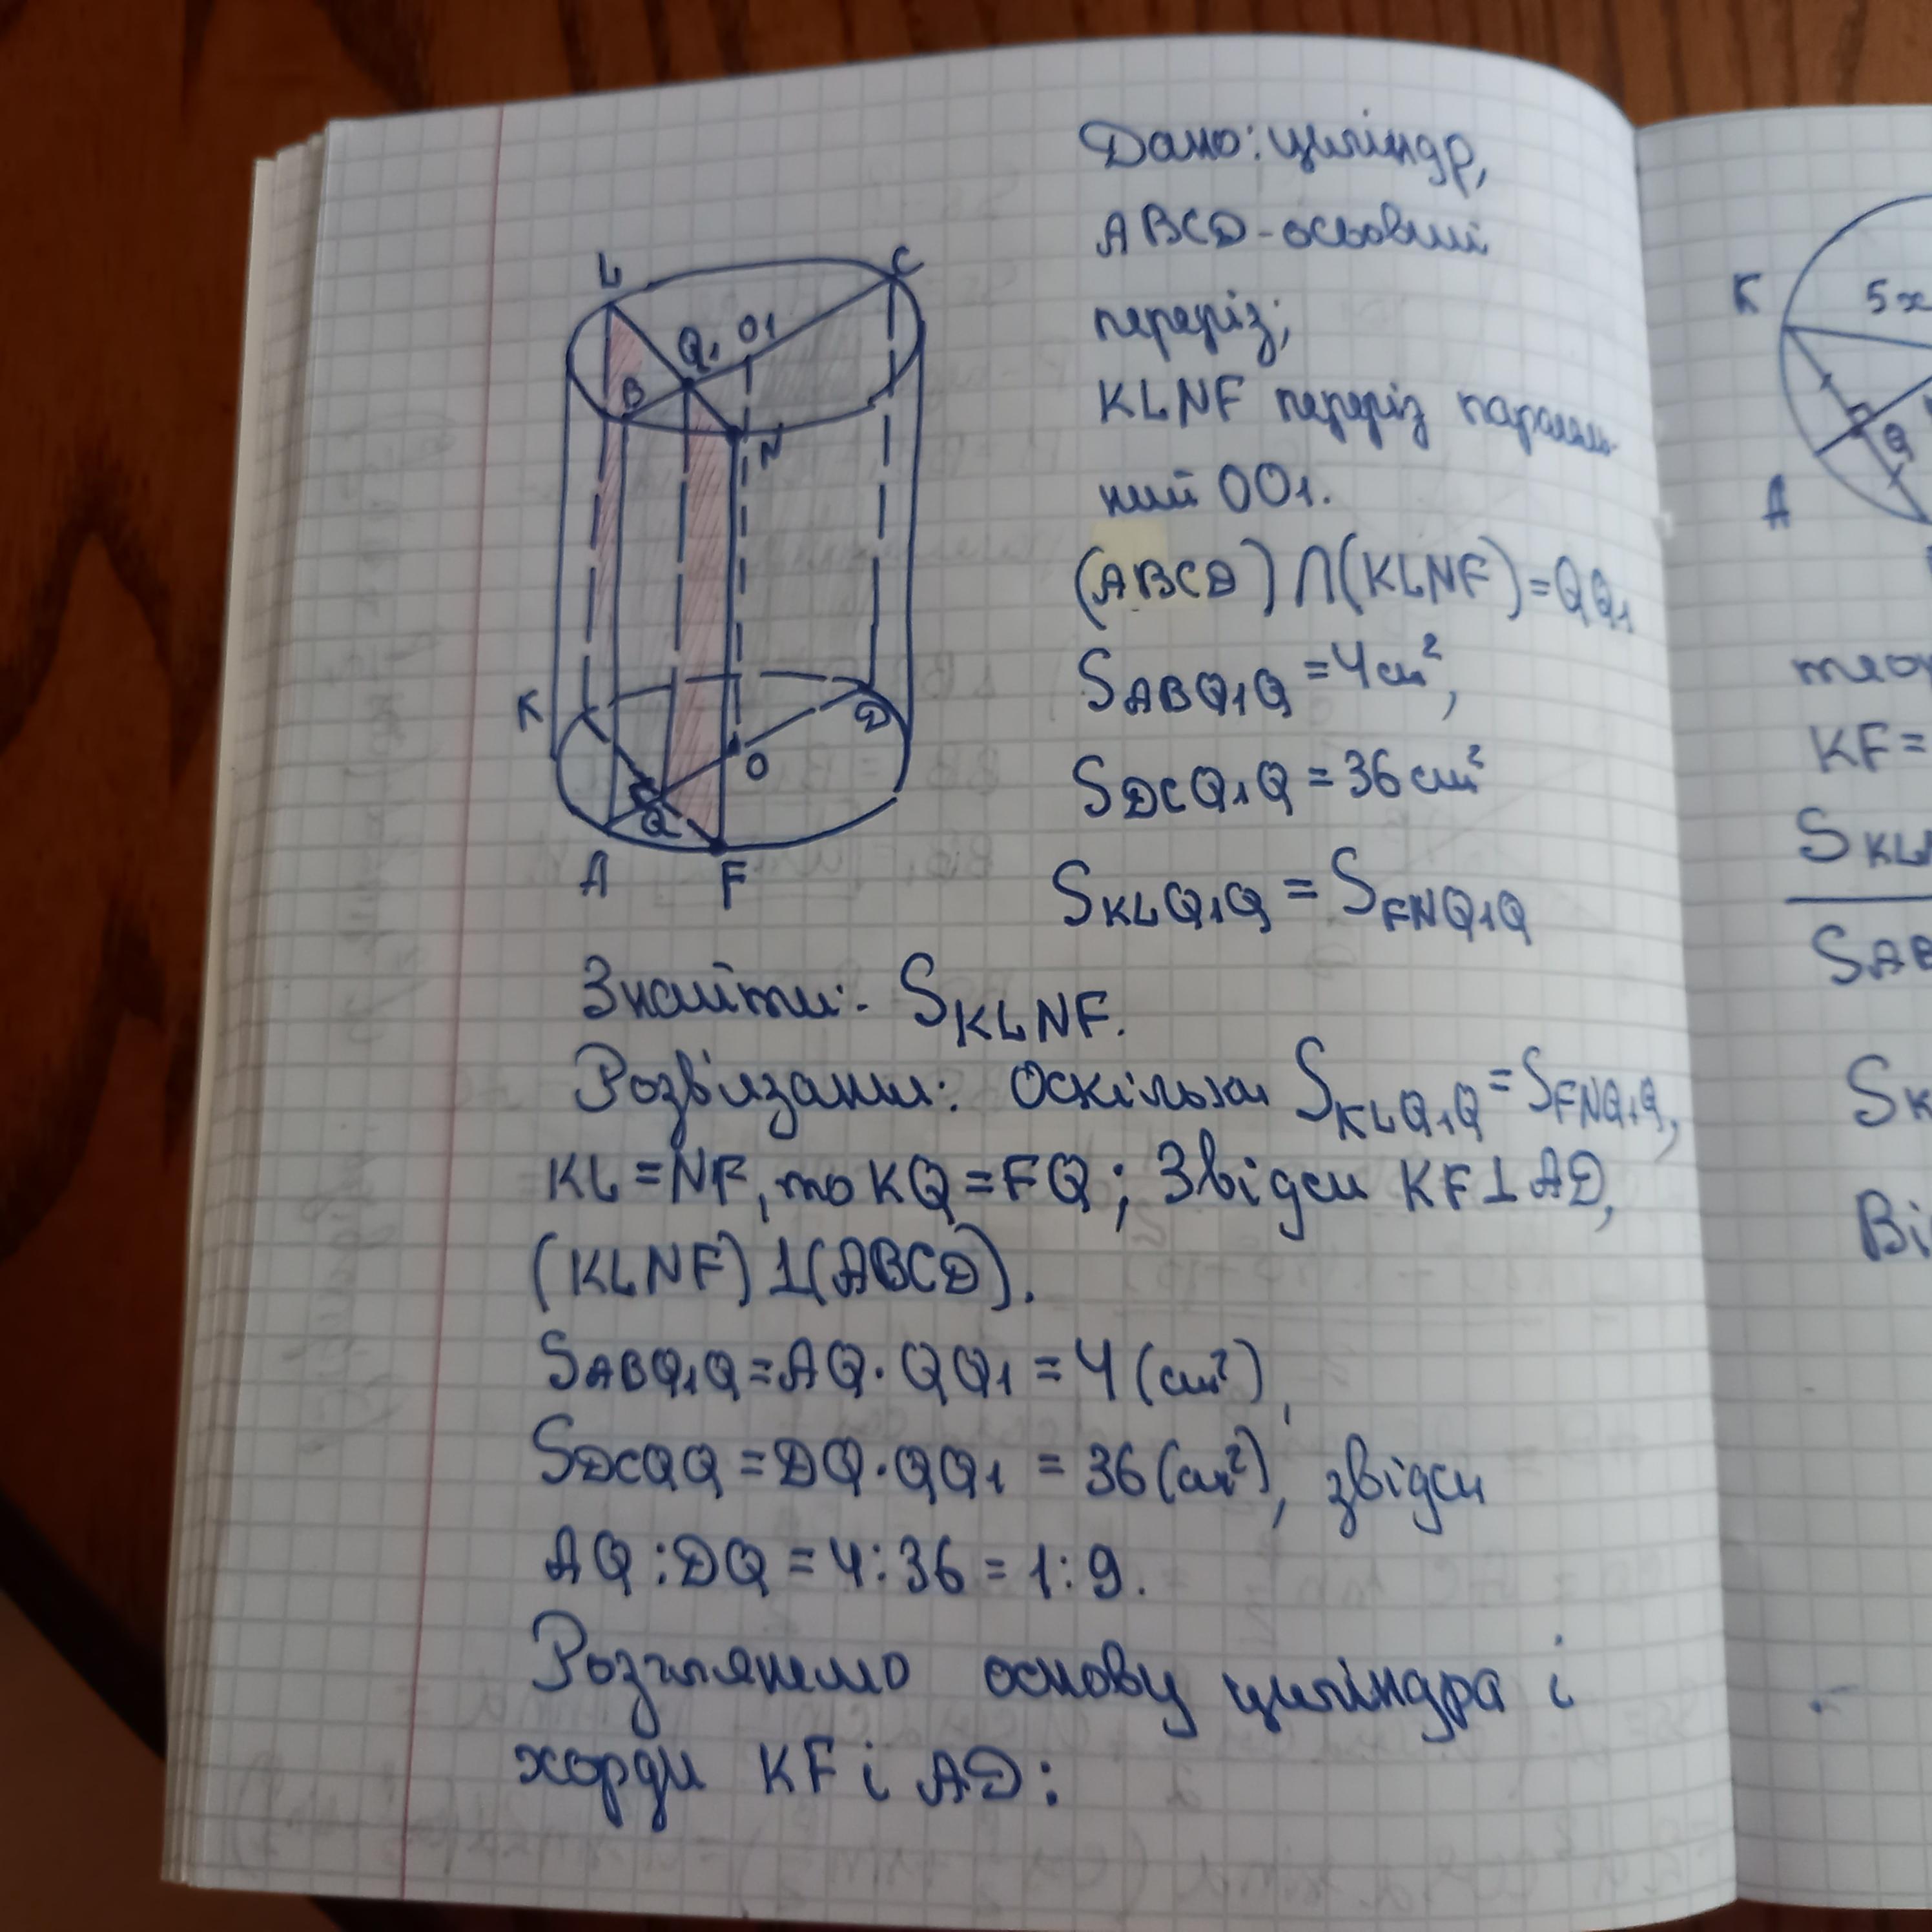 Дано: циліндр,
ABCD - осьовий
переріз;
KLNF переріз паралель-
ний OO1.
(ABCD) ∩ (KLNF) = QQ1
SABQ1Q = 4 см²,
SDCQ1Q = 36 см²
SKLQ1Q = SFNQ1Q
L
C
Q1
O1
B
N
K
D
O
Q
A
F
Знайти: - SKLNF.
Розв'язання: Оскільки SKLQ1Q = SFNQ1Q,
KL = NF, то KQ = FQ; Звідси KF ⊥ AD,
(KLNF) ⊥ (ABCD).
SABQ1Q = AQ · QQ1 = 4 (см²),
SDCQQ = DQ · QQ1 = 36 (см²), звідси
AQ : DQ = 4 : 36 = 1 : 9.
Розглянемо основу циліндра і
хорди KF і AD:
K
5x
Q
A
KF =
SKL
SAB
Sк
Ві